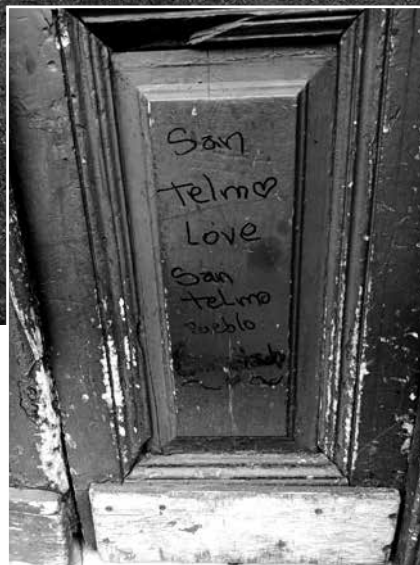 San
telm♡
Love
San
telmo
Pueblo